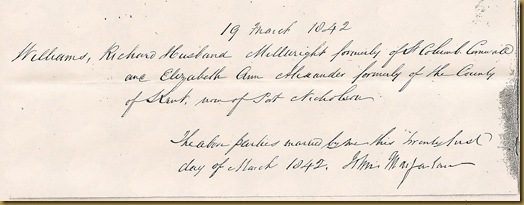 19 March 1842
Williams, Richard Husband Millwright formerly of St Columb Cornwall
and Elizabeth Ann Alexander formerly of the County
of Kent, now of Port Nicholson
The above parties married by me this Twenty first
day of March 1842.